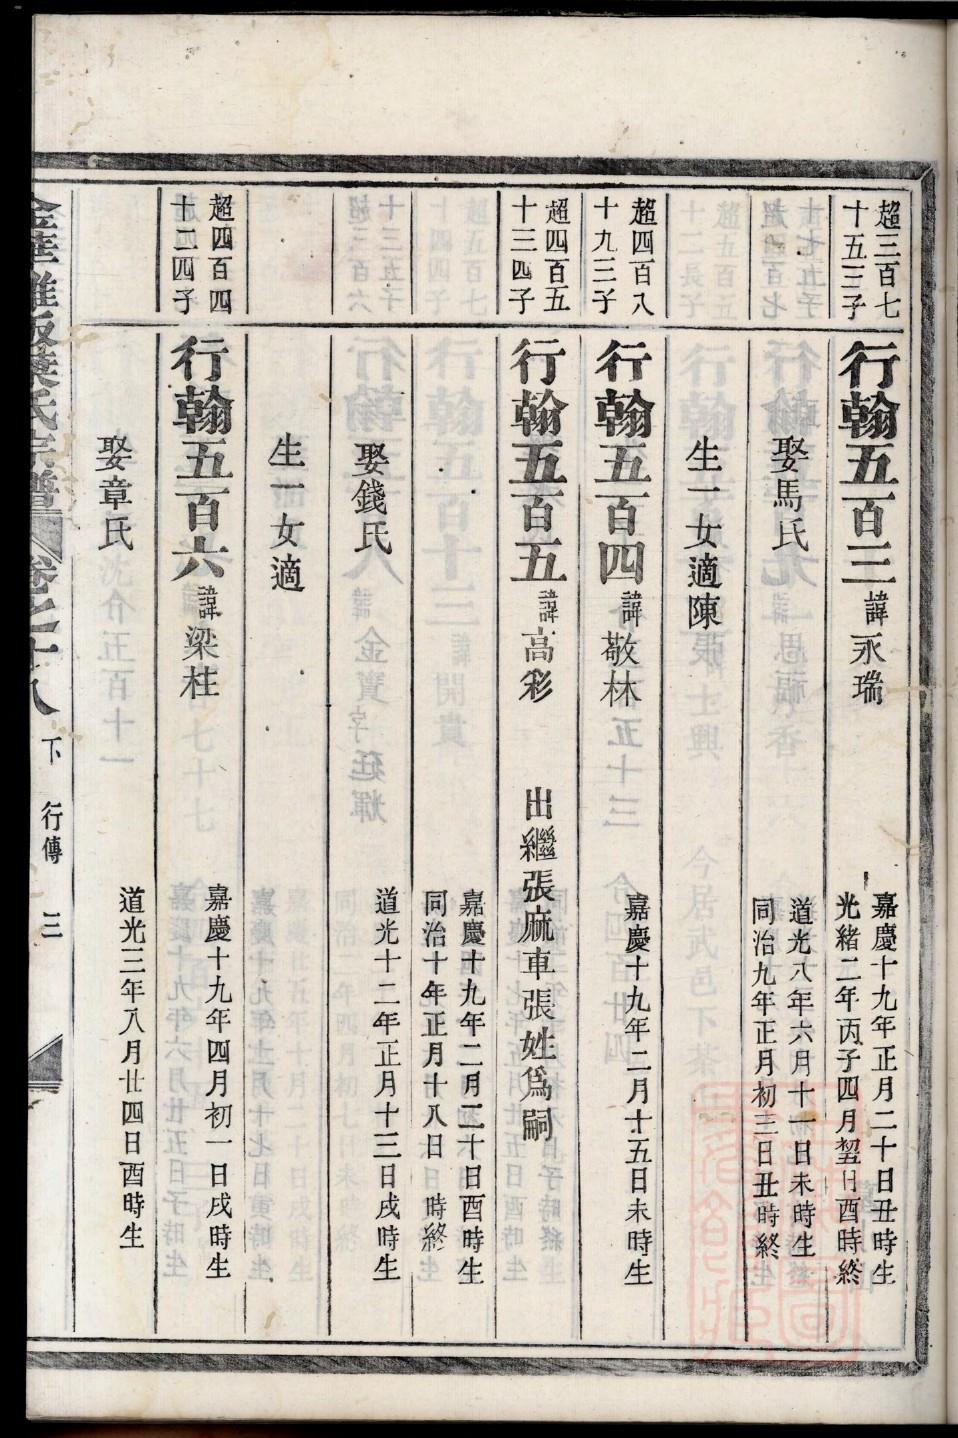 超三百七
十五三子
行翰五百三 諱永瑞
嘉慶十九年正月二十日丑時生
光緒二年丙子四月初廿日酉時終
娶馬氏
道光八年六月十一日未時生
同治九年正月初三日丑時終
生一女適陳
超四百八
十九三子
行翰五百四 諱敬林
嘉慶十九年二月十五日未時生
超四百五
十三四子
行翰五百五 諱高彩 出繼張麻車張姓爲嗣
嘉慶十九年二月二十日酉時生
同治十年正月十八日 時終
娶錢氏
道光十二年正月十三日戌時生
生一女適
超四百四
十二四子
行翰五百六 諱梁桂
嘉慶十九年四月初一日戌時生
娶章氏
道光三年八月廿四日酉時生
葉氏宗譜 卷之十八 下 行傳 三